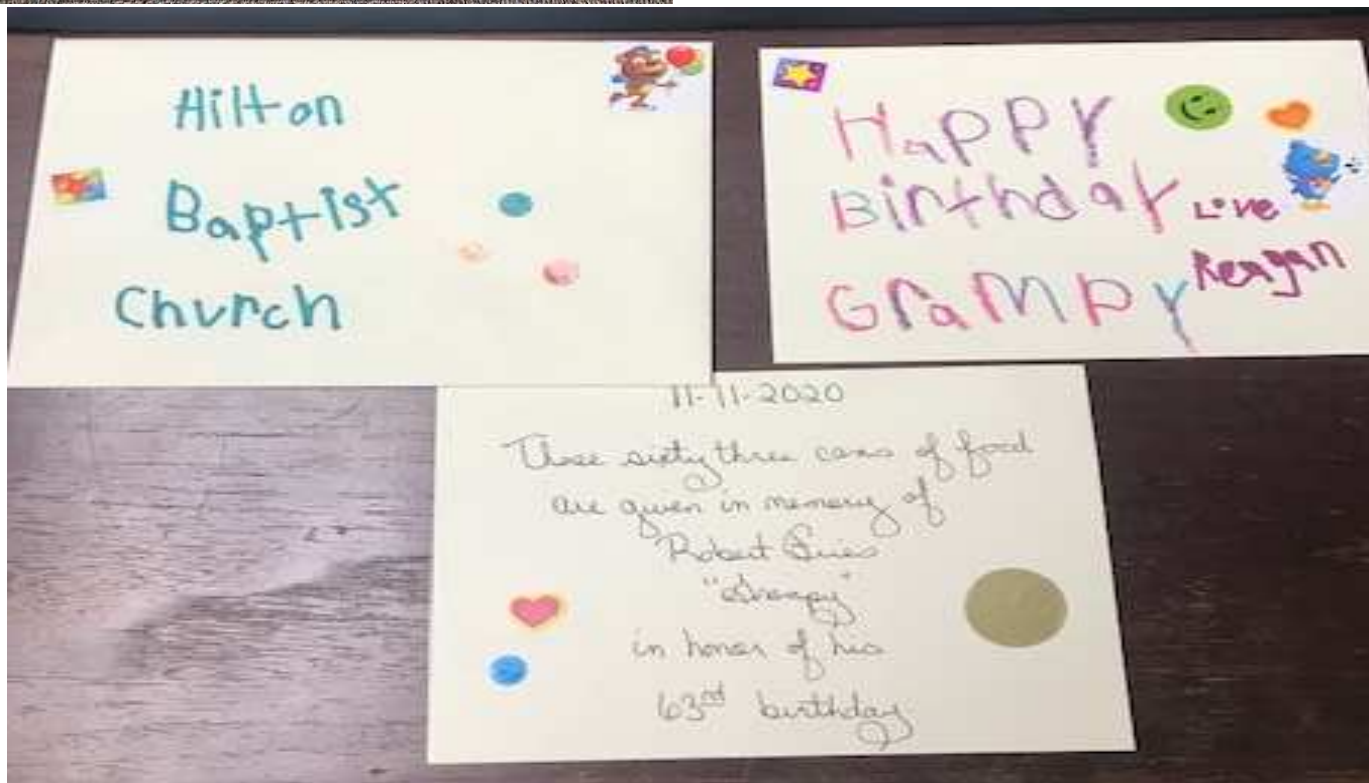 Hilton
Baptist
Church
Happy
Birthday Love
Grampy Reagan
11-11-2020
These sixty three cans of food
are given in memory of
Robert
"Grampy"
in honor of his
63rd birthday